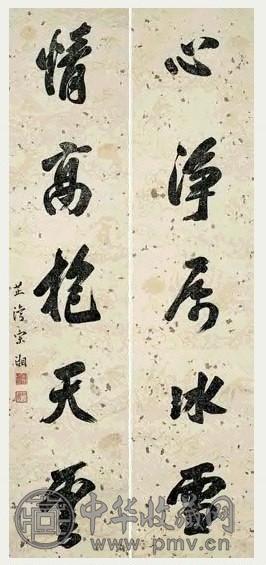 心淨厲冰雪
情高抱天雲
芷灣宋湘
中华收藏网
www.pmv.cn